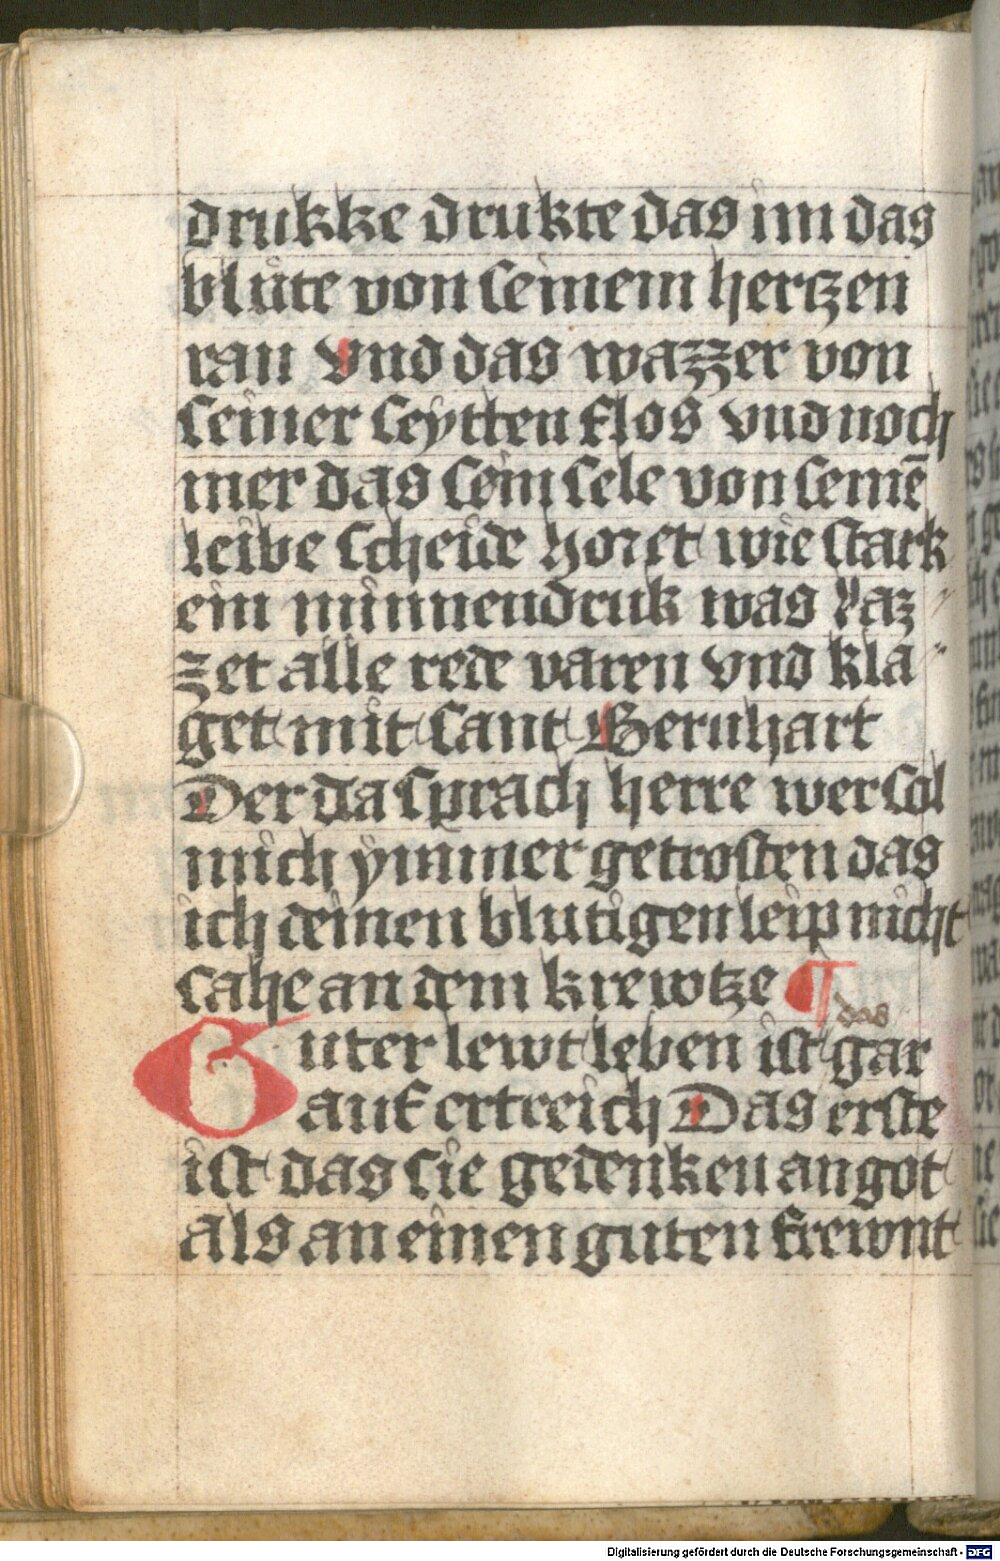 drukke drukte das im das
blute von seinem hertzen
ran vnd das wazzer von
seiner seytten flos vnd noch
mer das sein sele von seinē
leibe scheide horet wie stark
ein minnendruk was laz
zet alle rede varen vnd kla
get mit sant Bernhart
Der da sprach herre wer sol
mich ymmer getrosten das
ich deinen blutigen leip nicht
sahe an dem krewtze ¶
das
Guter lewt leben ist gar
auf ertreich Das erste
ist das sie gedenken an got
als an einen guten frewnt
Digitalisierung gefördert durch die Deutsche Forschungsgemeinschaft - DFG